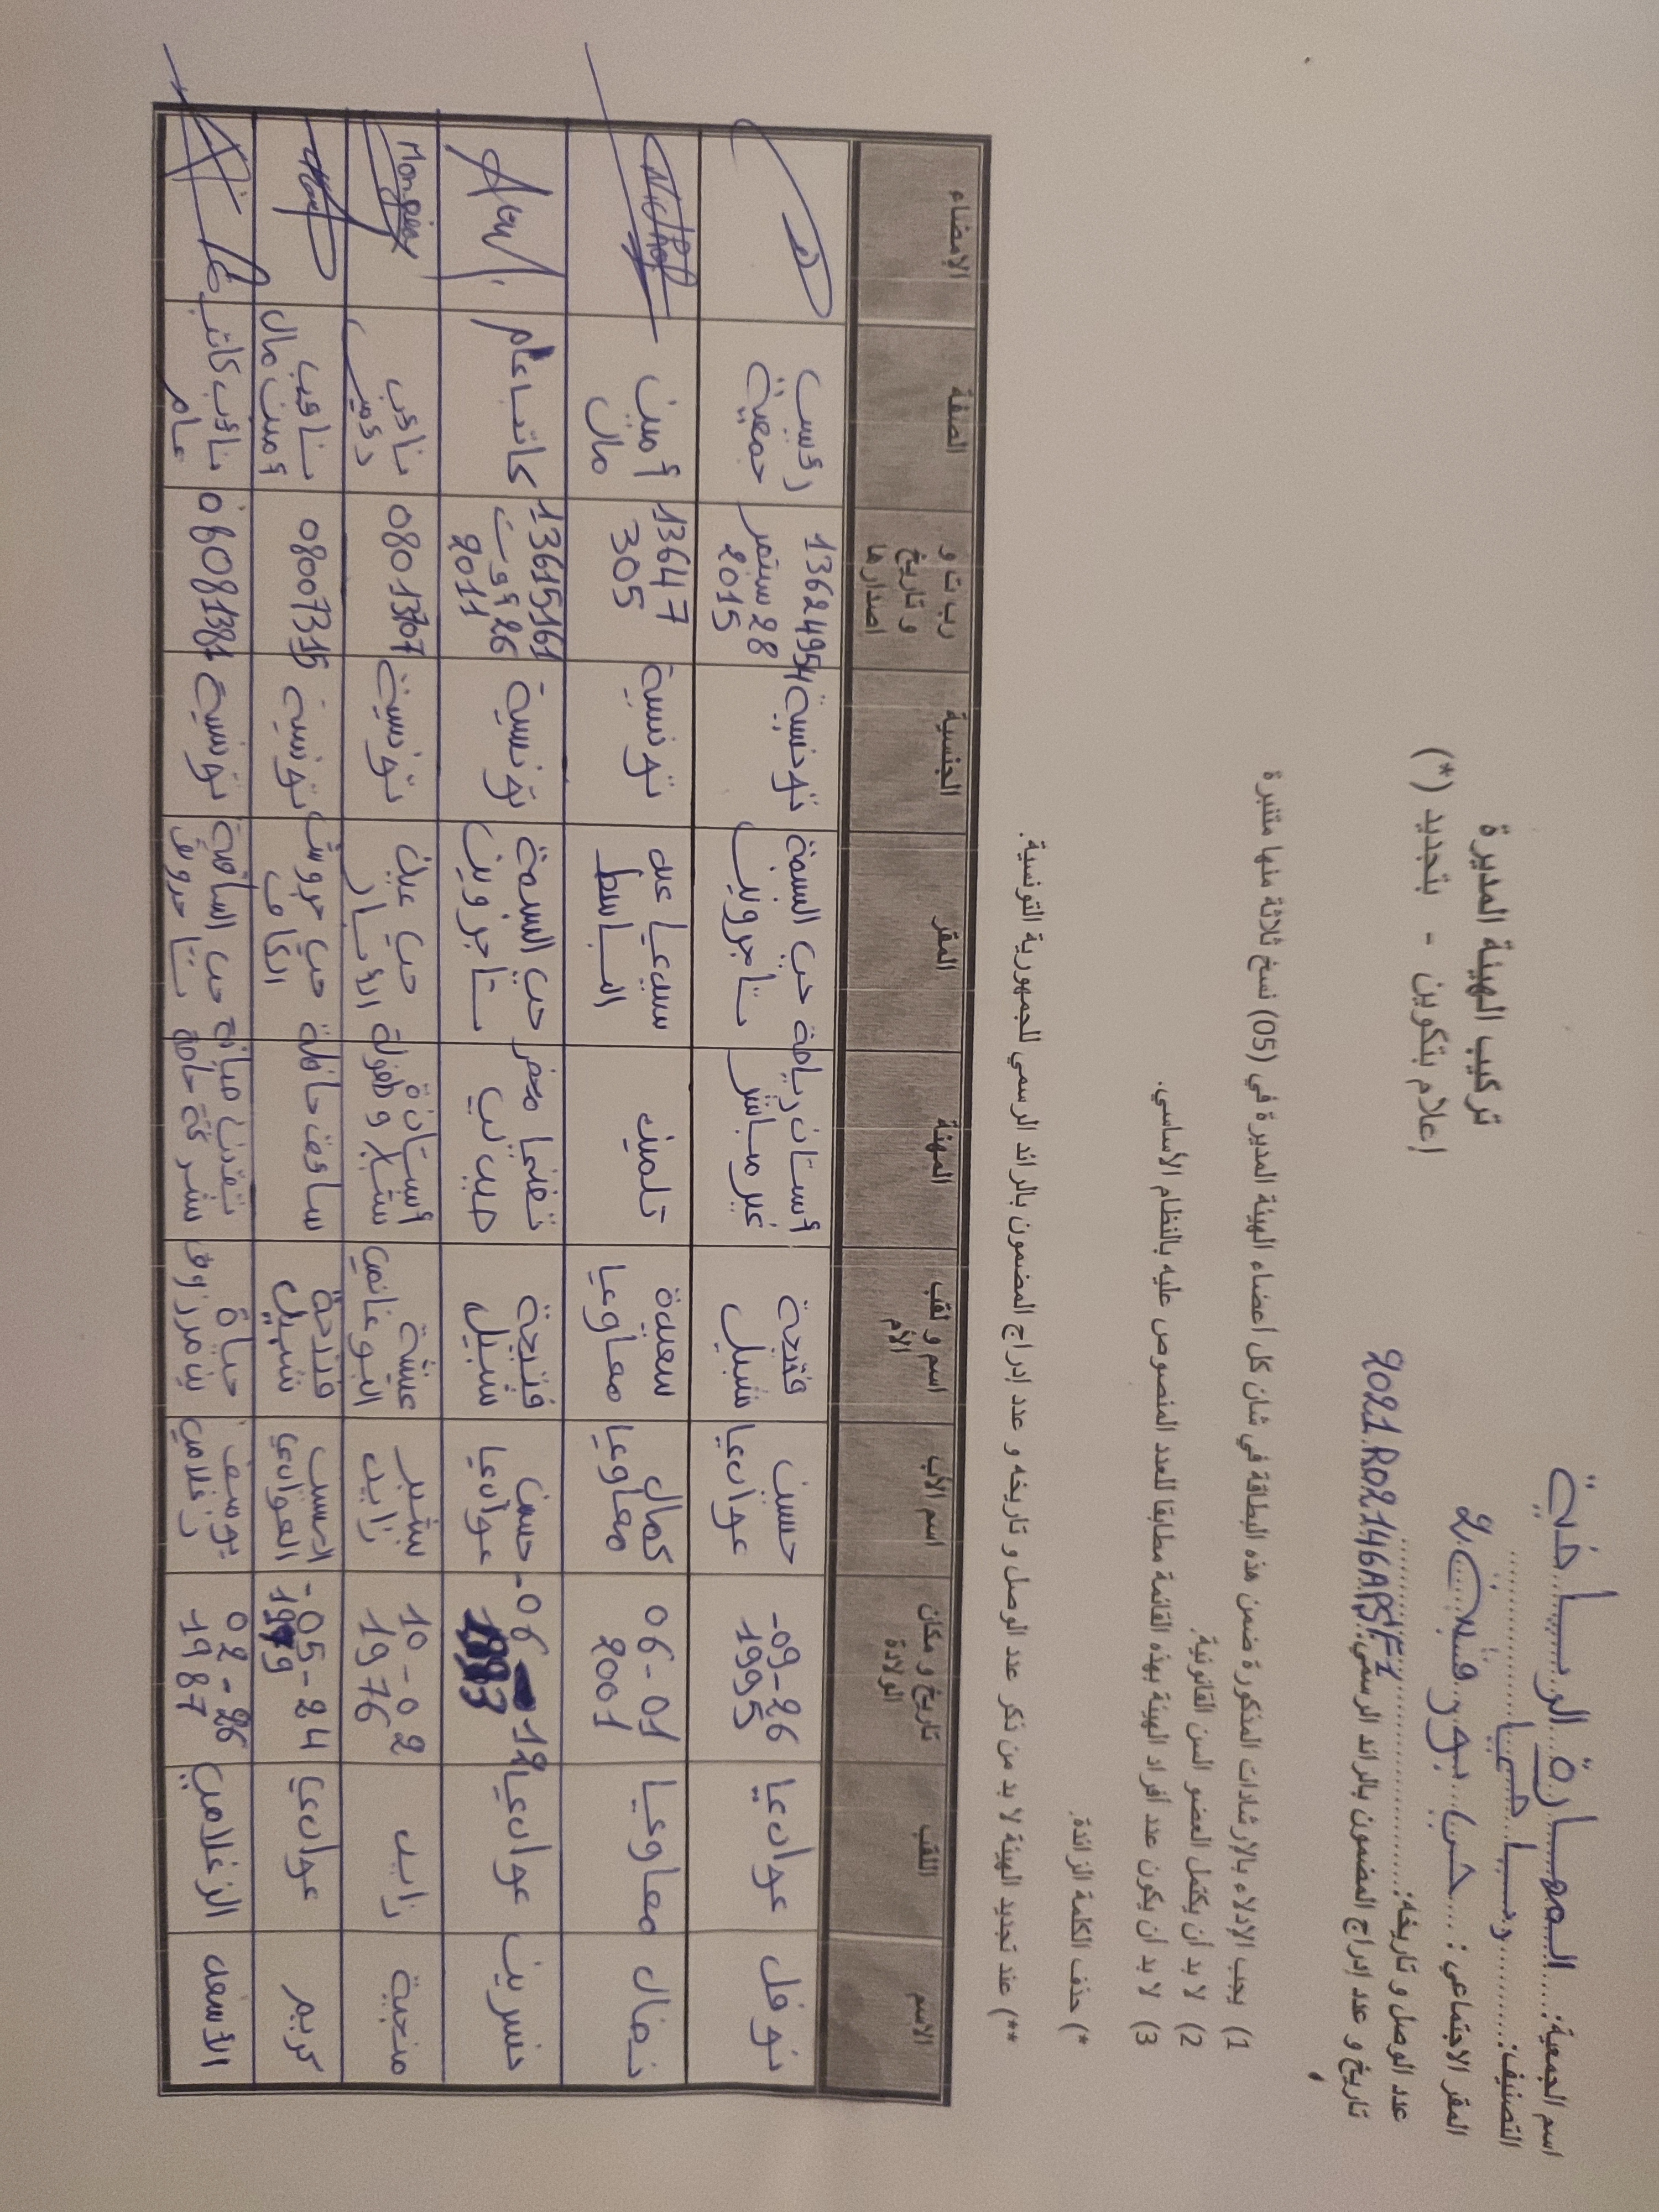 اسم الجمعية: المهارة الرياضية
التصنيف: رياضيا
المقر الاجتماعي: حي بورقيبة 2
عدد الوصل و تاريخه:
تاريخ و عدد إدراج المضمون بالرائد الرسمي: 2021R02146APSF1
تركيب الهيئة المديرة
إعلام بتكوين - بتجديد (*)
1) يجب الإدلاء بالإرشادات المذكورة ضمن هذه البطاقة في شأن كل أعضاء الهيئة المديرة في (05) نسخ ثلاثة منها متنبرة
2) لا بد أن يكتمل العضو السن القانونية.
3) لا بد أن يكون عدد أفراد الهيئة بهذه القائمة مطابقا للعدد المنصوص عليه بالنظام الأساسي.
*) حذف الكلمة الزائدة.
**) عند تجديد الهيئة لا بد من ذكر عدد الوصل و تاريخه و عدد إدراج المضمون بالرائد الرسمي للجمهورية التونسية.
الاسم اللقب تاريخ و مكان الولادة اسم الأب اسم و لقب الأم المهنة المقر الجنسية ر ب ت و و تاريخ اصدارها الصفة الإمضاء
نوفل عوادي 26-09-1995 حسين عوادي فتيحة شبيل أستاذ رياضة غير مباشر حي البسمة تاجروين تونسية 13624954 28 سبتمبر 2015 رئيس جمعية
نضال معاويا 01-06-2001 كمال معاويا سعيدة معاويا تلميذ سيدي عبد الباسط تونسية 13647305 أمين مال
نسرين عوادي 12-06- حسين عوادي فتيحة شبيل تقني مخبر حي البسمة تاجروين تونسية 13615161 26 أوت 2011 كاتب عام
منجية زايد 02-10-1976 بشير زايد عيشة البوغانمي أستاذة شباب وطفولة حي عين تونسية 08013707 نائب رئيس Mongia
كريم عوادي 24-05-1979 العوادي شبيل سائق حافلة حي الكاف تونسية 08007315 نائب أمين مال
الأسعد الزغلامي 26-02-1987 يوسف زغلامي حياة بن مرزوق تقني صيانة شركة خاصة حي تونسية نائب كاتب عام